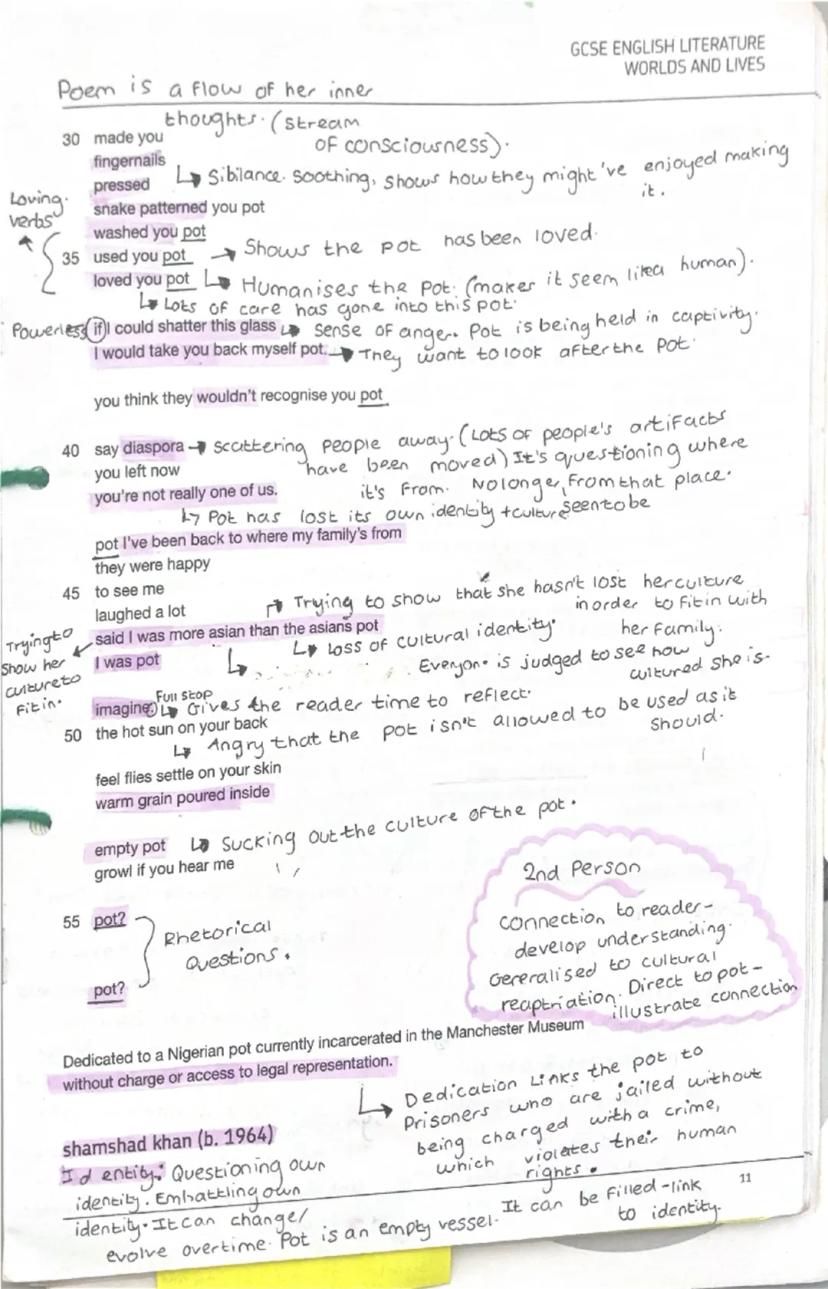 GCSE ENGLISH LITERATURE
WORLDS AND LIVES
Poem is a flow of her inner
thoughts. (stream
of consciousness).
30 made you
fingernails
↳ Sibilance. Soothing, shows how they might've enjoyed making
it.
pressed
snake patterned you pot
Loving
verbs
washed you pot
35 used you pot → Shows the pot has been loved.
loved you pot ↳ Humanises the pot. (makes it seem like a human).
↳ Lots of care has gone into this pot.
Powerless if I could shatter this glass ↳ sense of anger. Pot is being held in captivity.
I would take you back myself pot. → They want to look after the pot.
you think they wouldn't recognise you pot
40 say diaspora → Scattering people away. (Lots of people's artifacts
have been moved) It's questioning where
it's from. No longer from that place.
you left now
you're not really one of us.
↳ Pot has lost its own identity + culture seen to be
pot I've been back to where my family's from
they were happy
45 to see me
laughed a lot
↱ Trying to show that she hasn't lost her culture
in order to fit in with
her family.
said I was more asian than the asians pot
↳ Loss of cultural identity.
Trying to
show her
culture to
fit in.
I was pot
↳ Everyone is judged to see how
cultured she is.
imagine. Full stop
↳ Gives the reader time to reflect.
50 the hot sun on your back
↳ Angry that the pot isn't allowed to be used as it
should.
feel flies settle on your skin
warm grain poured inside
empty pot ↳ Sucking out the culture of the pot.
growl if you hear me
55 pot?
Rhetorical
questions.
pot?
2nd Person
connection to reader-
develop understanding.
Gereralised to cultural
reaptriation. Direct to pot-
illustrate connection
Dedicated to a Nigerian pot currently incarcerated in the Manchester Museum
without charge or access to legal representation.
↳ Dedication links the pot to
Prisoners who are jailed without
being charged with a crime,
which violates their human
rights.
shamshad khan (b. 1964)
Identity: Questioning own
identity. Embattling own
identity. It can change/
evolve overtime. Pot is an empty vessel. It can be filled-link
to identity.
11